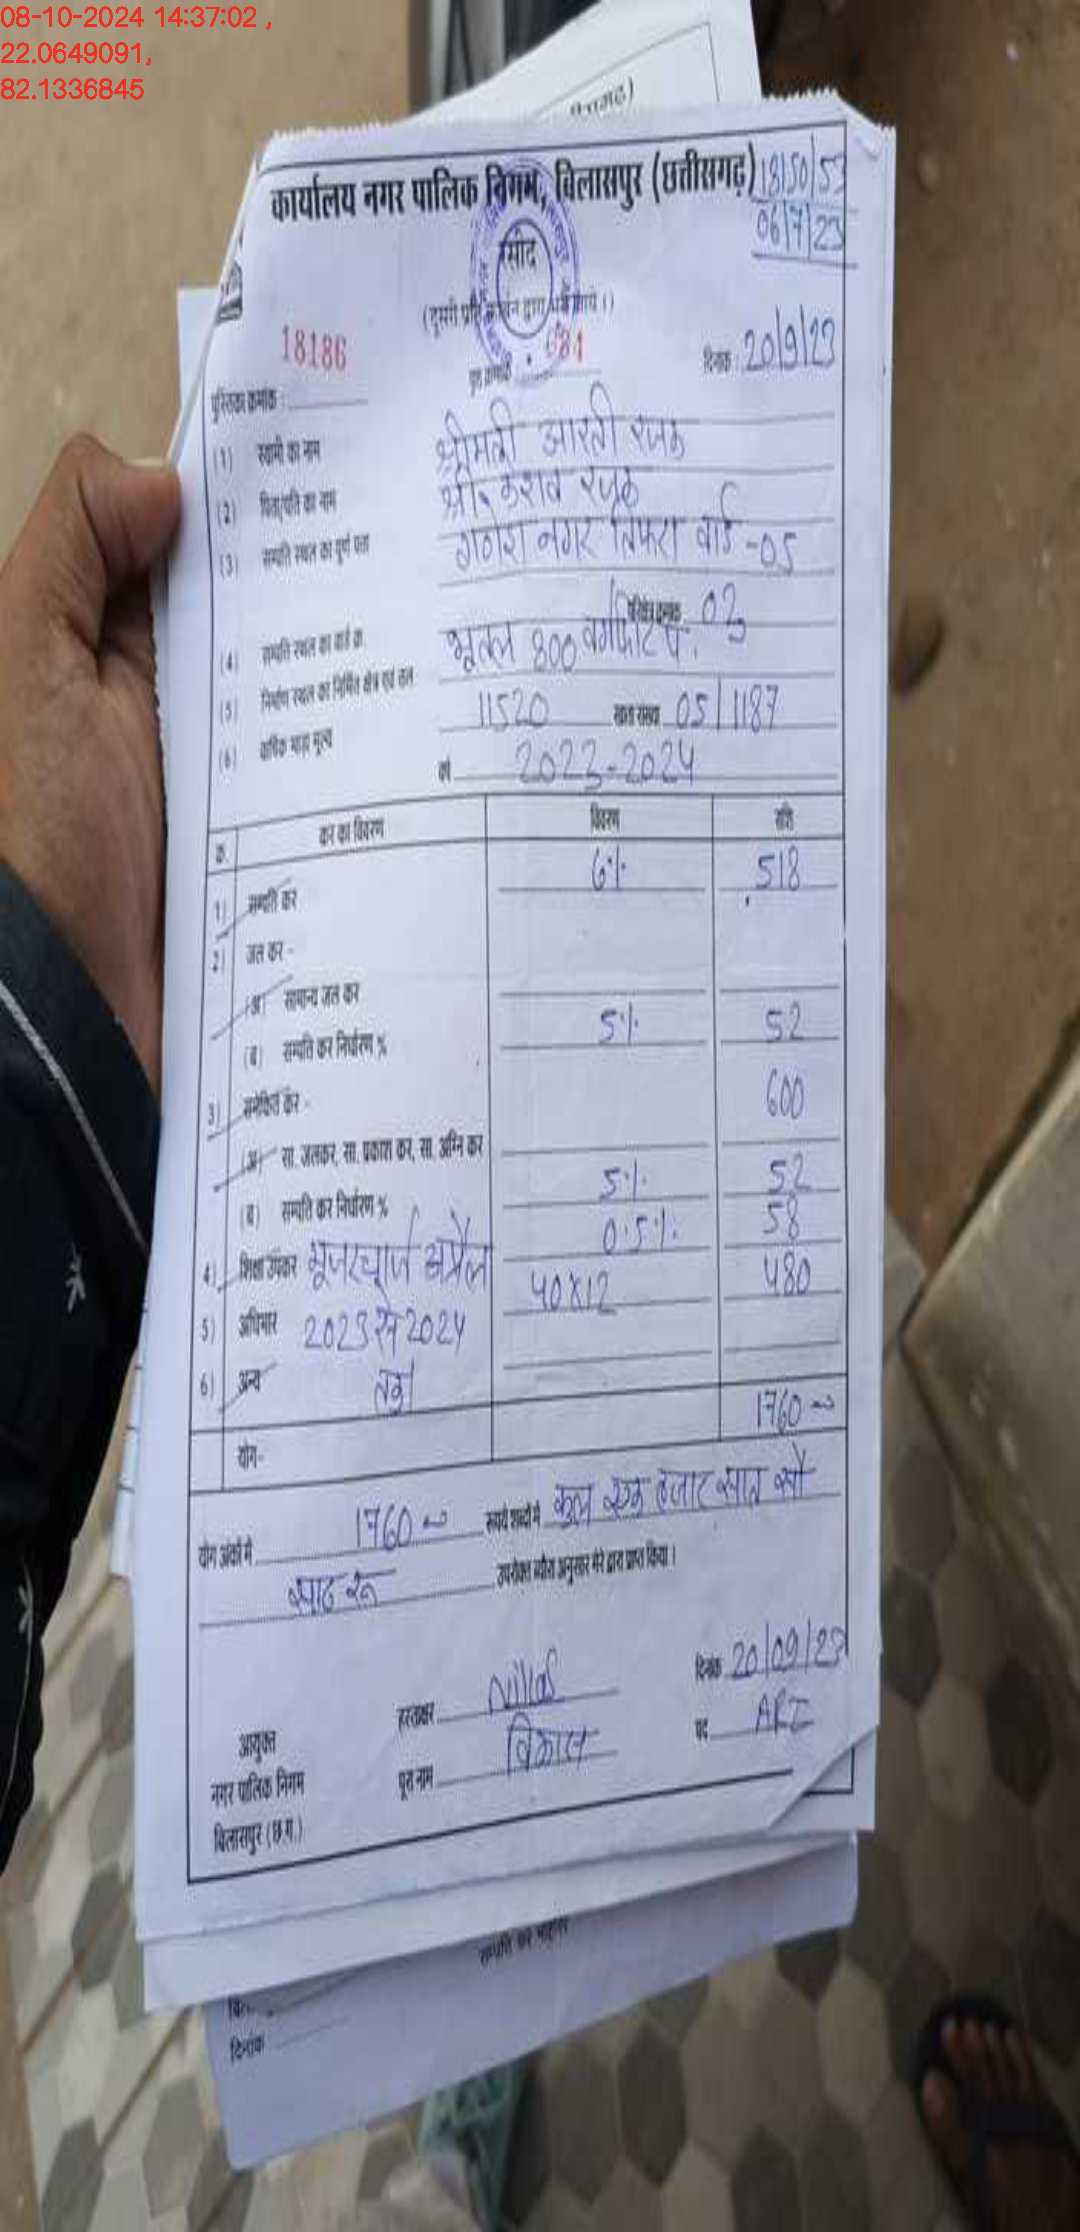 08-10-2024 14:37:02 ,
22.0649091,
82.1336845
कार्यालय नगर पालिक निगम, बिलासपुर (छत्तीसगढ़) 18150/53
06/7/23
रसीद
18186 684
पुस्तिका क्रमांक : पृष्ठ क्रमांक दिनांक : 20/9/23
(1) स्वामी का नाम श्रीमती आरती रजक
(2) पिता/पति का नाम श्री केशव रजक
(3) सम्पत्ति स्थल का पूर्ण पता गणेश नगर तिफरा वार्ड -05
(4) सम्पत्ति स्थल का वार्ड क्र. परिक्षेत्र क्रमांक 03
(5) निर्माण स्थल का निर्मित क्षेत्र एवं तल भूतल 800 वर्गफीट
(6) वार्षिक भाड़ा मूल्य 11520 खाता संख्या 05/1187
वर्ष 2023-2024
क्र. कर का विवरण विवरण राशि
1) सम्पत्ति कर 6% 518
2) जल कर -
(अ) सामान्य जल कर
(ब) सम्पत्ति कर निर्धारण % 5% 52
3) समेकित कर - 600
(अ) सा. जलकर, सा. प्रकाश कर, सा. अग्नि कर
(ब) सम्पत्ति कर निर्धारण % 5% 52
4) शिक्षा उपकर 0.5% 58
यूजरचार्ज अप्रैल 40x12 480
5) अधिभार 2023 से 2024
6) अन्य तक
योग- 1760
योग अंकों में 1760 रूपये शब्दों में कुल एक हजार सात सौ
साठ रू उपरोक्त ब्यौरा अनुसार मेरे द्वारा प्राप्त किया।
हस्ताक्षर दिनांक 20/09/23
आयुक्त पूरा नाम विकास पद ARI
नगर पालिक निगम
बिलासपुर (छ.ग.)
दिनांक